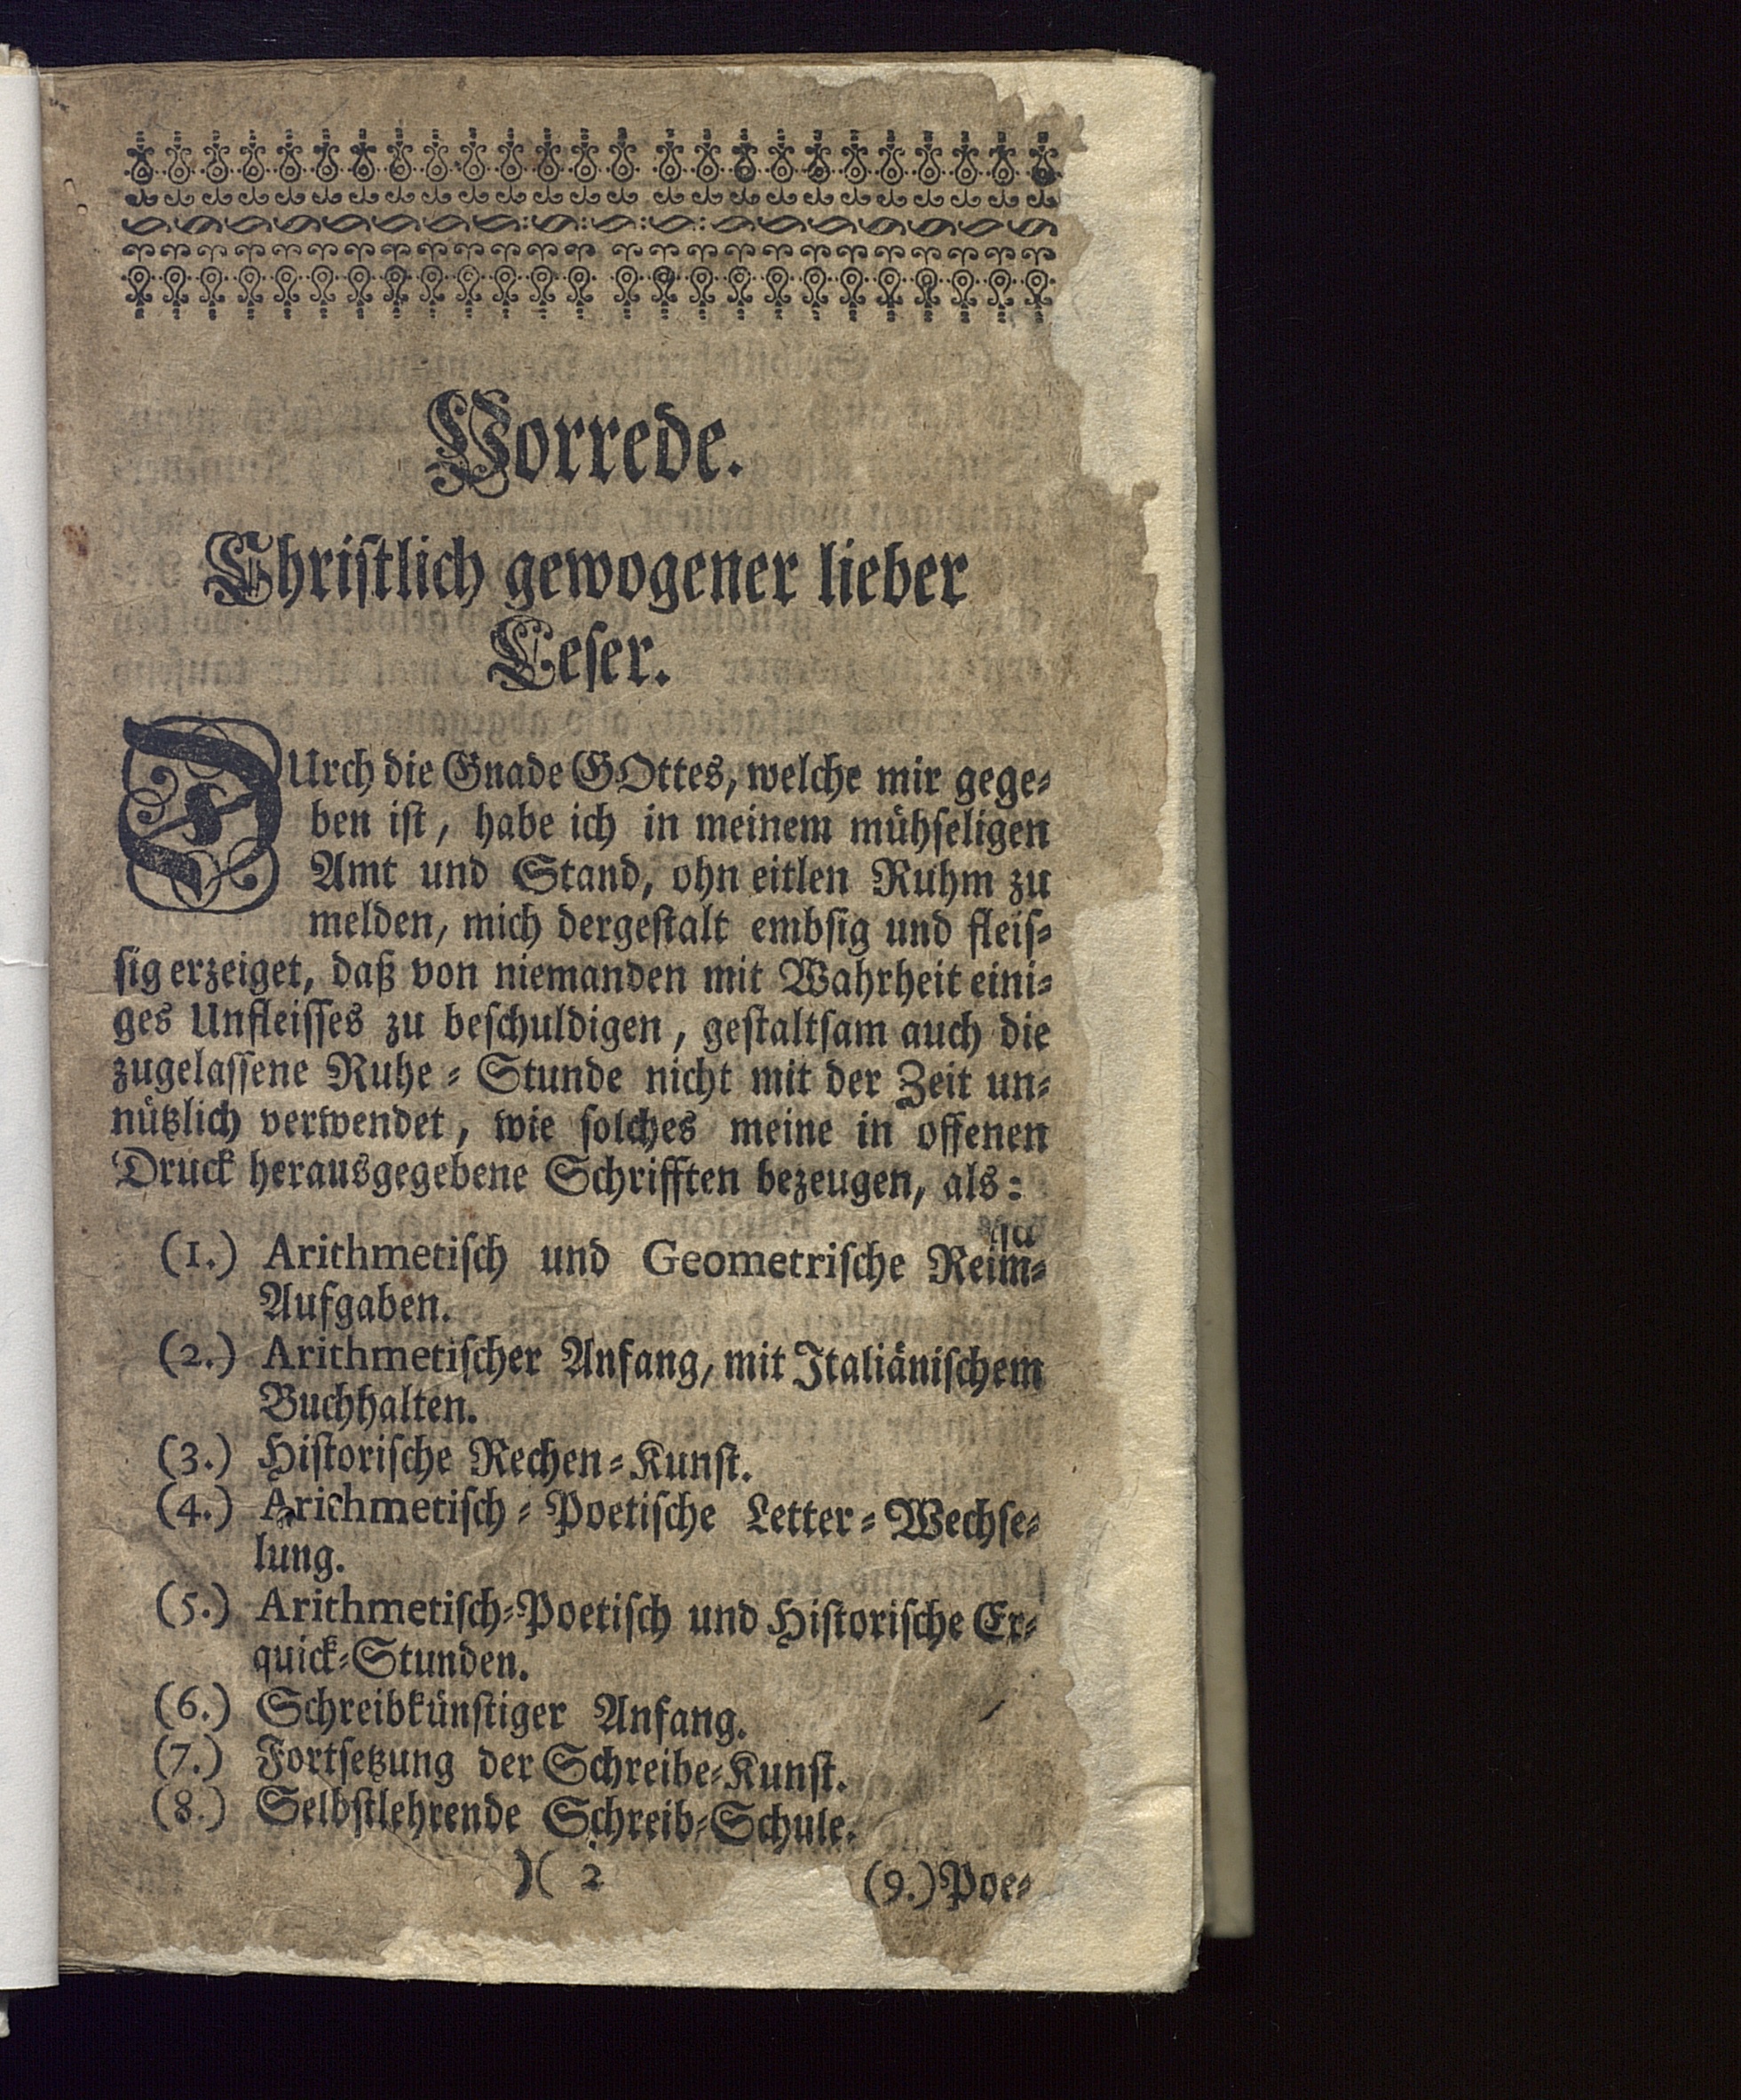 Vorrede.
Chriſtlich gewogener lieber
Leſer.
DUrch die Gnade GOttes, welche mir gege⸗
ben iſt, habe ich in meinem mühſeligen
Amt und Stand, ohn eitlen Ruhm zu
melden, mich dergeſtalt embſig und fleiſ⸗
ſig erzeiget, daß von niemanden mit Wahrheit eini⸗
ges Unfleiſſes zu beſchuldigen, geſtaltſam auch die
zugelaſſene Ruhe⸗Stunde nicht mit der Zeit un⸗
nützlich verwendet, wie ſolches meine in offenen
Druck herausgegebene Schrifften bezeugen, als:
(1.) Arithmetiſch und Geometriſche Reim⸗
Aufgaben.
(2.) Arithmetiſcher Anfang, mit Italiäniſchem
Buchhalten.
(3.) Hiſtoriſche Rechen⸗Kunſt.
(4.) Arithmetiſch⸗Poetiſche Letter⸗Wechſe⸗
lung.
(5.) Arithmetiſch⸗Poetiſch und Hiſtoriſche Er⸗
quick⸗Stunden.
(6.) Schreibkünſtiger Anfang.
(7.) Fortſetzung der Schreibe⸗Kunſt.
(8.) Selbſtlehrende Schreib⸗Schule.
)( 2 (9.) Poe⸗